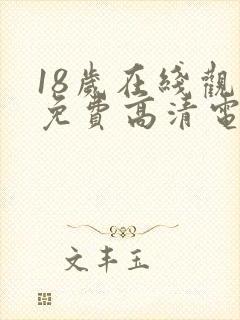 18歲在綫觀
免費高清電
文丰玉